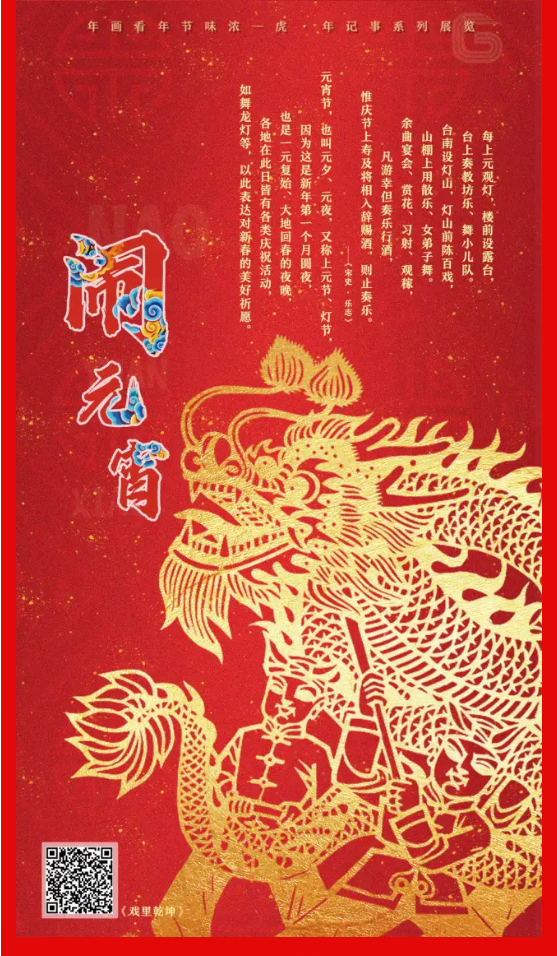 年画看年节味浓—虎·年记事系列展览
每上元观灯，楼前设露台，
台上奏教坊乐、舞小儿队。
台南设灯山，灯山前陈百戏，
山棚上用散乐、女弟子舞。
余曲宴会、赏花、习射、观稼，
凡游幸但奏乐行酒，
惟庆节上寿及将相入辞赐酒，则止奏乐。
——《宋史·乐志》
元宵节，也叫元夕、元夜，又称上元节、灯节，
因为这是新年第一个月圆夜，
也是一元复始、大地回春的夜晚，
各地在此日皆有各类庆祝活动，
如舞龙灯等，以此表达对新春的美好祈愿。
NAO
闹
元
宵
《戏里乾坤》